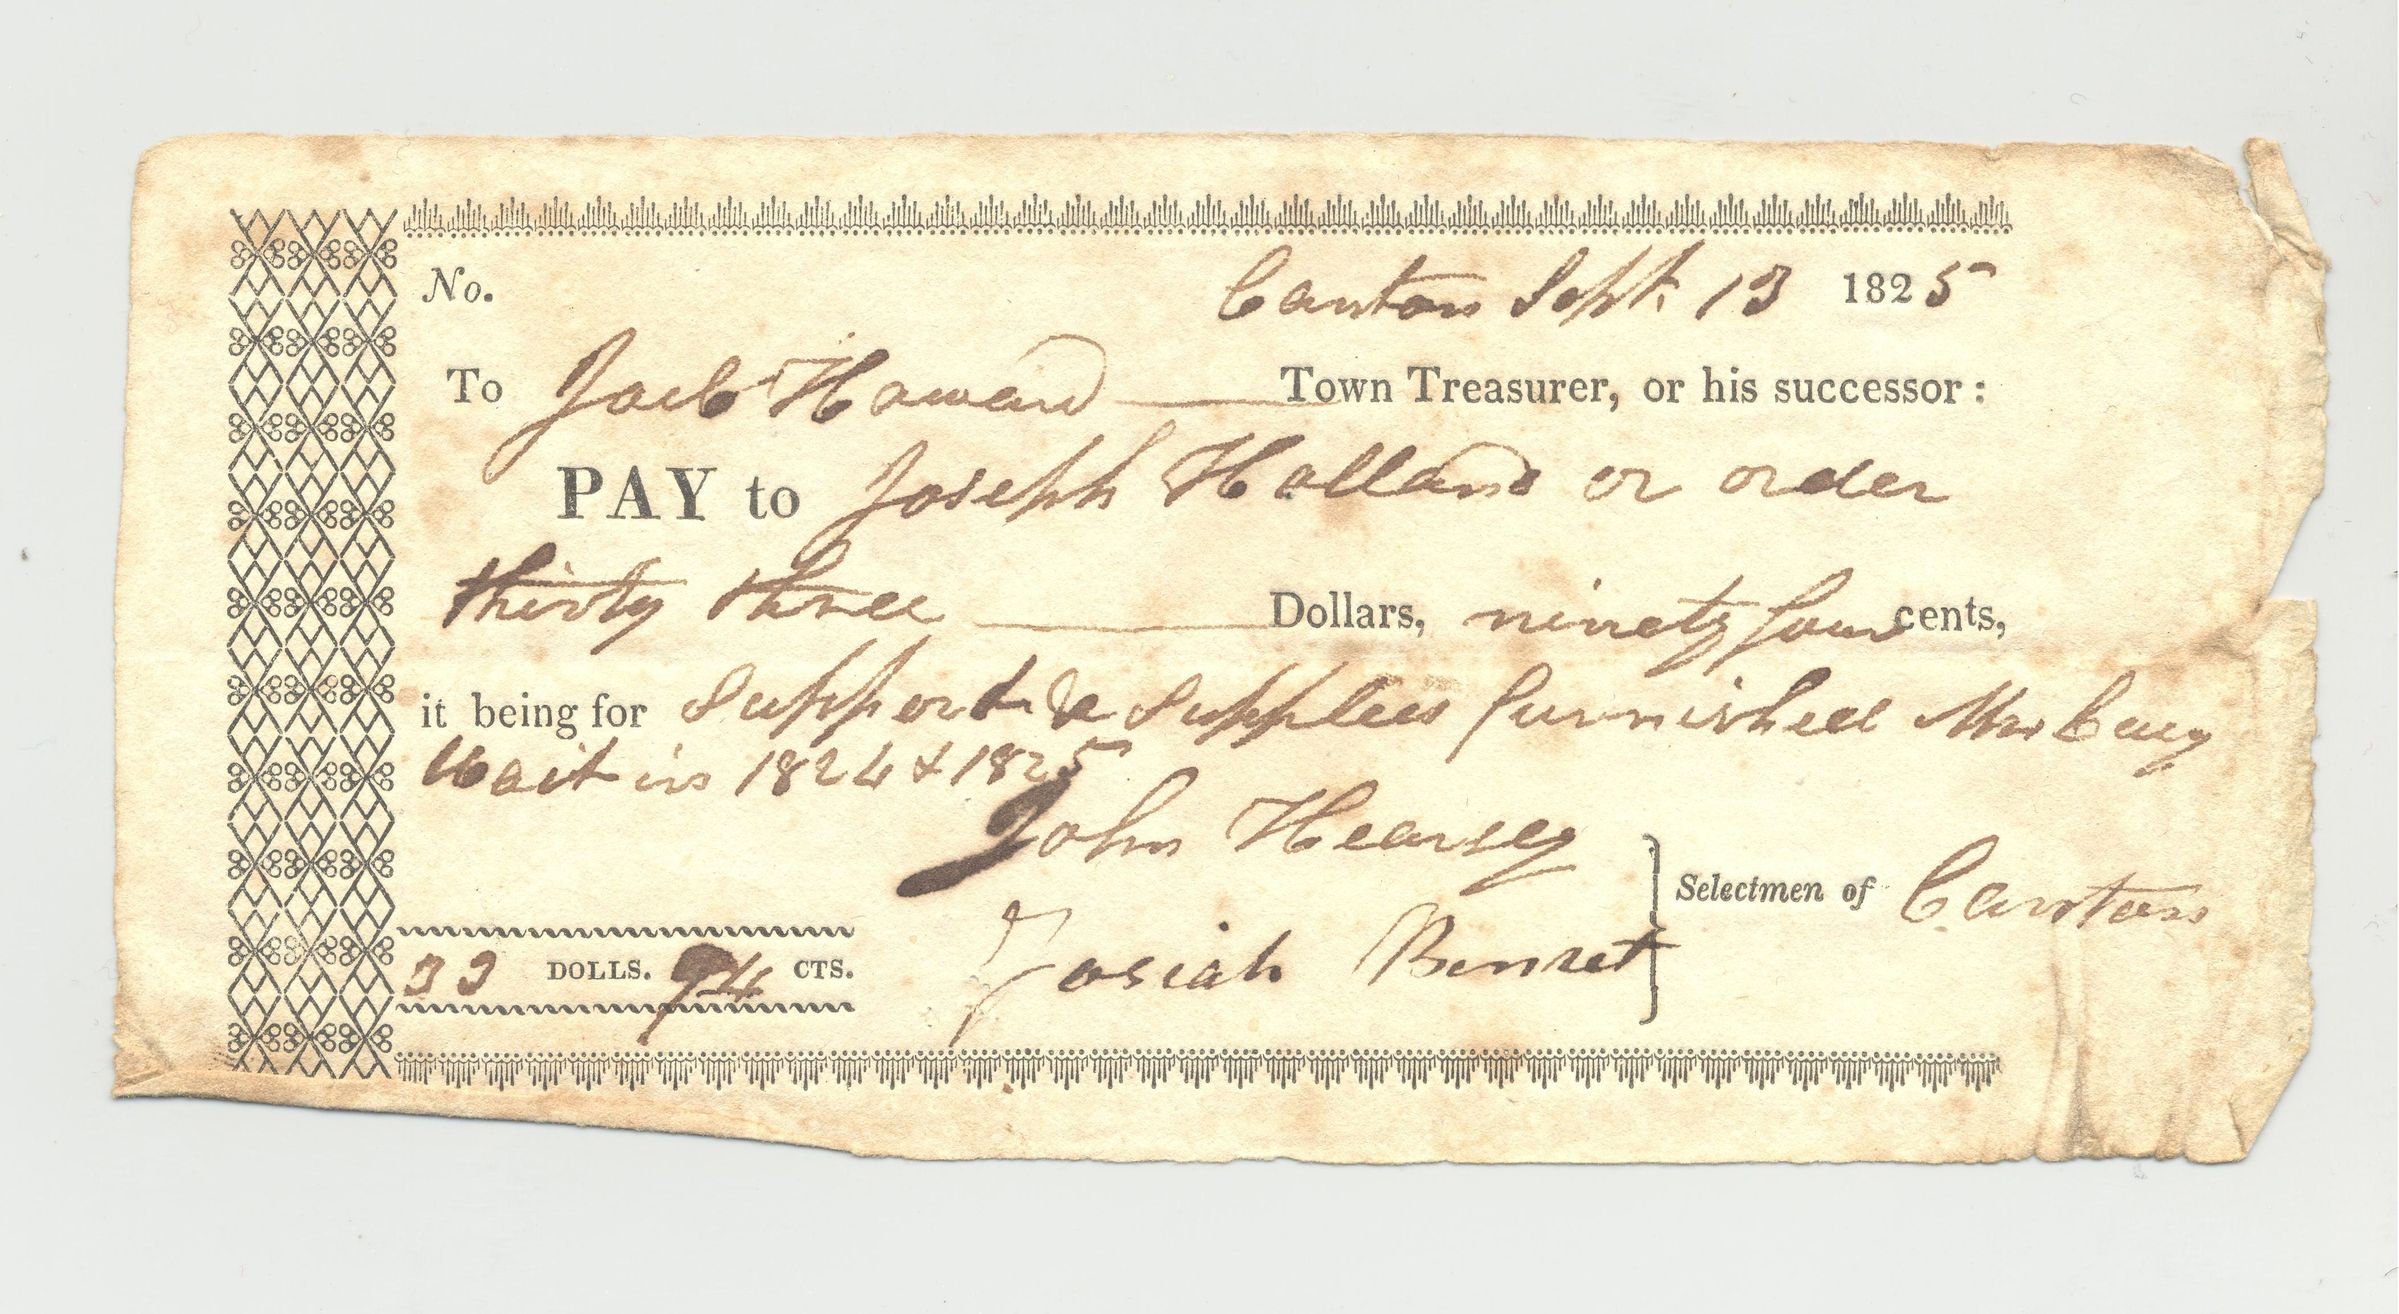 No. Canton Sept. 13 1825
To Jacob Howard Town Treasurer, or his successor:
PAY to Joseph Holland or order
thirty three Dollars, ninety four cents,
it being for Support & Supplies furnished Mrs
Wait in 1824 & 1825
John Hearsey
Selectmen of Canton
Josiah Bennet
33 DOLLS. 94 CTS.